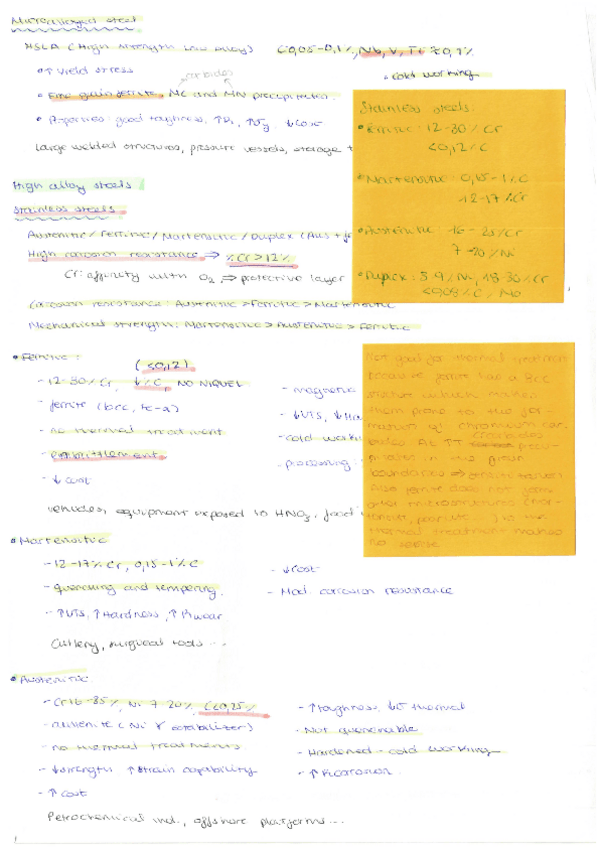 Microalloyed steel
HSLA (High strength low alloy) C 0,05-0,1%, Nb, V, Ti
· ↑ Yield stress
carbides
· cold working
· Fine grain ferrite, NC and MN precipitates.
· Properties: good toughness, ↓ cost
Large welded structures, pressure vessels, storage t
Stainless steels:
· Ferritic: 12-30% Cr
<0,12% C
· Martensitic: 0,15-1% C
12-17% Cr
· Austenitic: 16-25% Cr
7-20% Ni
· Duplex: 3-9% Ni, 18-30% Cr
<0,08% C, Mo
High alloy steels
Stainless steels
Austenitic / Ferritic / Martensitic / Duplex (Aus + fe
High corrosion resistance ⇒ % Cr > 12%
Cr: affinity with O2 ⇒ protective layer
Corrosion resistance: Austenitic > Ferritic > Martensitic
Mechanical strength: Martensitic > Austenitic > Ferritic
· Ferritic:
(<0,12)
- 12-30% Cr, ↓% C, NO NIQUEL
- ferrite (bcc, Fe-α)
- no thermal treatment
- embrittlement
- ↓ cost
- magnetic
- ↓ UTS, ↓ Ha
- cold worki
- processing:
vehicles, equipment exposed to HNO3, food i
Not good for thermal treatment
because ferrite has a bcc
structure which makes
them prone to the for-
mation of chromium car-
bides. At TT carbides preci-
pitates in the grain
boundaries ⇒
Also ferrite does not form
other microstructures (mar-
tensite, pearlite...) so the
thermal treatment makes
no sense
· Martensitic
- 12-17% Cr, 0,15-1% C
- quenching and tempering
- ↑ UTS, ↑ Hardness, ↑ Rwear
Cutlery, surgical tools...
- ↓ cost
- Mod. corrosion resistance
· Austenitic
- Cr 16-25%, Ni 7-20%, C<0,25%
- austenite (Ni γ estabilizer)
- no thermal treatments
- ↓ strength, ↑ strain capability
- ↑ cost
- ↑ toughness, ↓ thermal
- Not quenchable
- Hardened - cold working
- ↑ Rcorrosion
Petrochemical ind., offshore platforms...